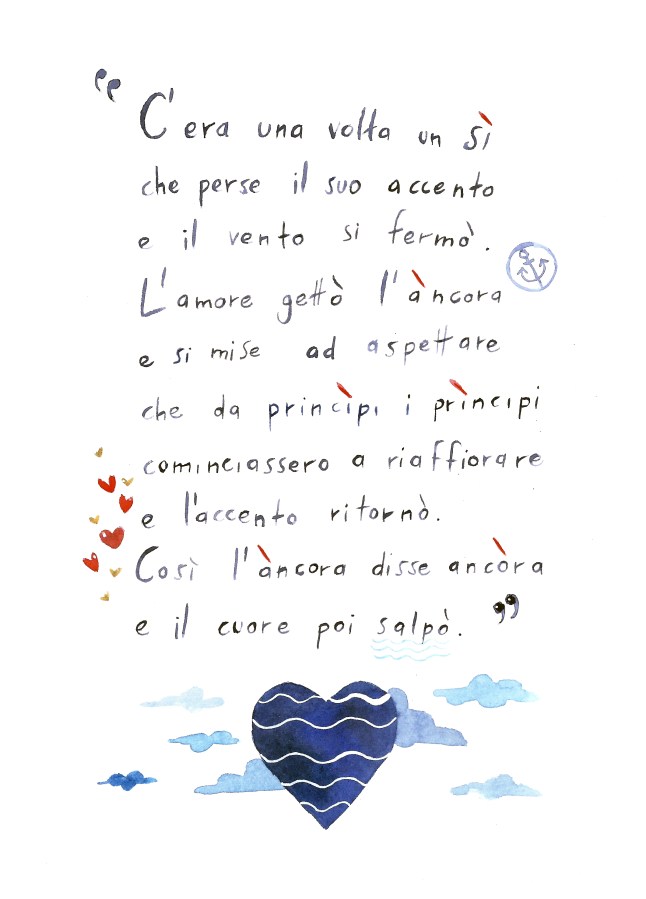 “C'era una volta un sì
che perse il suo accento
e il vento si fermò.
L'amore gettò l'àncora
e si mise ad aspettare
che da princìpi i prìncipi
cominciassero a riaffiorare
e l'accento ritornò.
Così l'àncora disse ancòra
e il cuore poi salpò.”